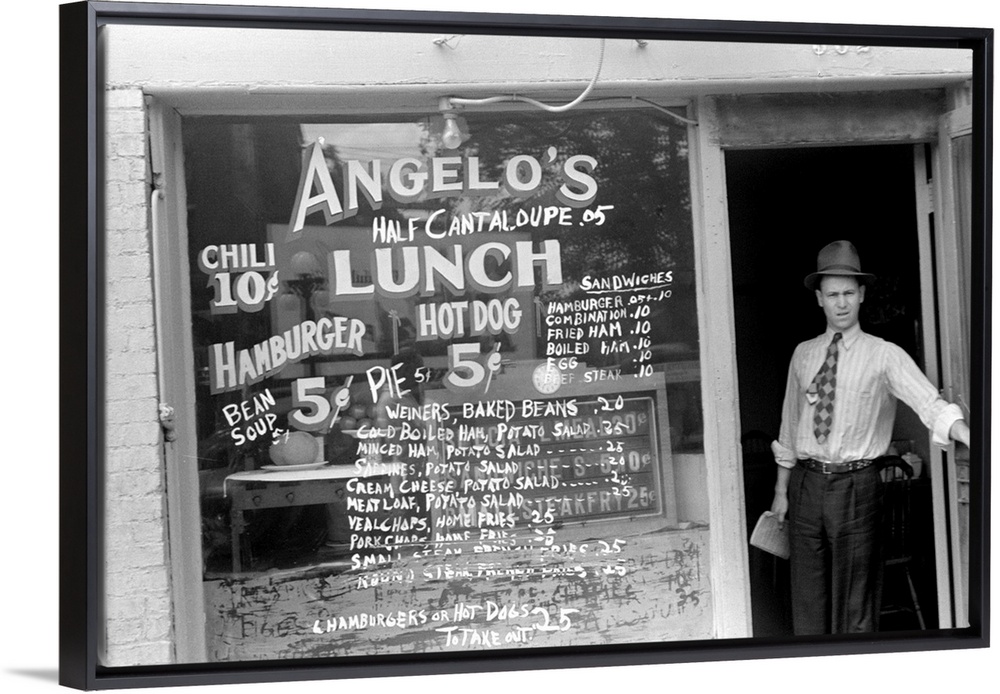 ANGELO'S
HALF CANTALOUPE .05
LUNCH
CHILI
10¢
HOT DOG
5¢
HAMBURGER
5¢
BEAN
SOUP 5¢
PIE 5¢
SANDWICHES
HAMBURGER .05 & .10
COMBINATION .10
FRIED HAM .10
BOILED HAM .10
EGG .10
BEEF STEAK .10
WEINERS, BAKED BEANS .20
COLD BOILED HAM, POTATO SALAD .25
MINCED HAM, POTATO SALAD ------ .25
SARDINES, POTATO SALAD ---- .20
CREAM CHEESE POTATO SALAD ---- .20
MEAT LOAF, POTATO SALAD ---- .25
VEAL CHOPS, HOME FRIES .25
PORK CHOPS, HOME FRIES
SMALL STEAK FRENCH FRIES .25
ROUND STEAK FRENCH FRIES .25
STEAK FRY 25¢
HAMBURGERS OR HOT DOGS .25
TO TAKE OUT